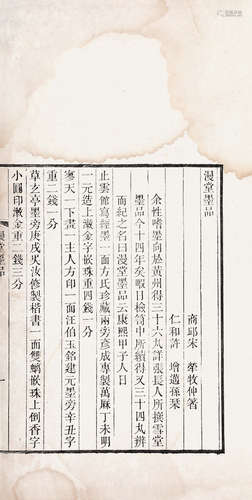 漫堂墨品
商邱宋 犖牧仲著
仁和許 增邁孫栞
余性嗜墨向於黃州得三十六丸詳張長人所撰雪堂
墨品今十四年矣暇日檢笥中所續得又三十四丸辨
而紀之名曰漫堂墨品云康熙甲子人日
止雲館寫經墨一面方氏珍藏兩旁彥成專製萬厤丁未明
一元造上漱金字嵌珠重四錢一分
寥天一下畫一主人方印一面汪伯玉銘建元墨旁辛丑字
重二錢一分
草玄亭墨旁庚戌友汝修製楷書一面雙螭嵌珠上倒香字
小圓印漱金重二錢三分
漫堂墨品